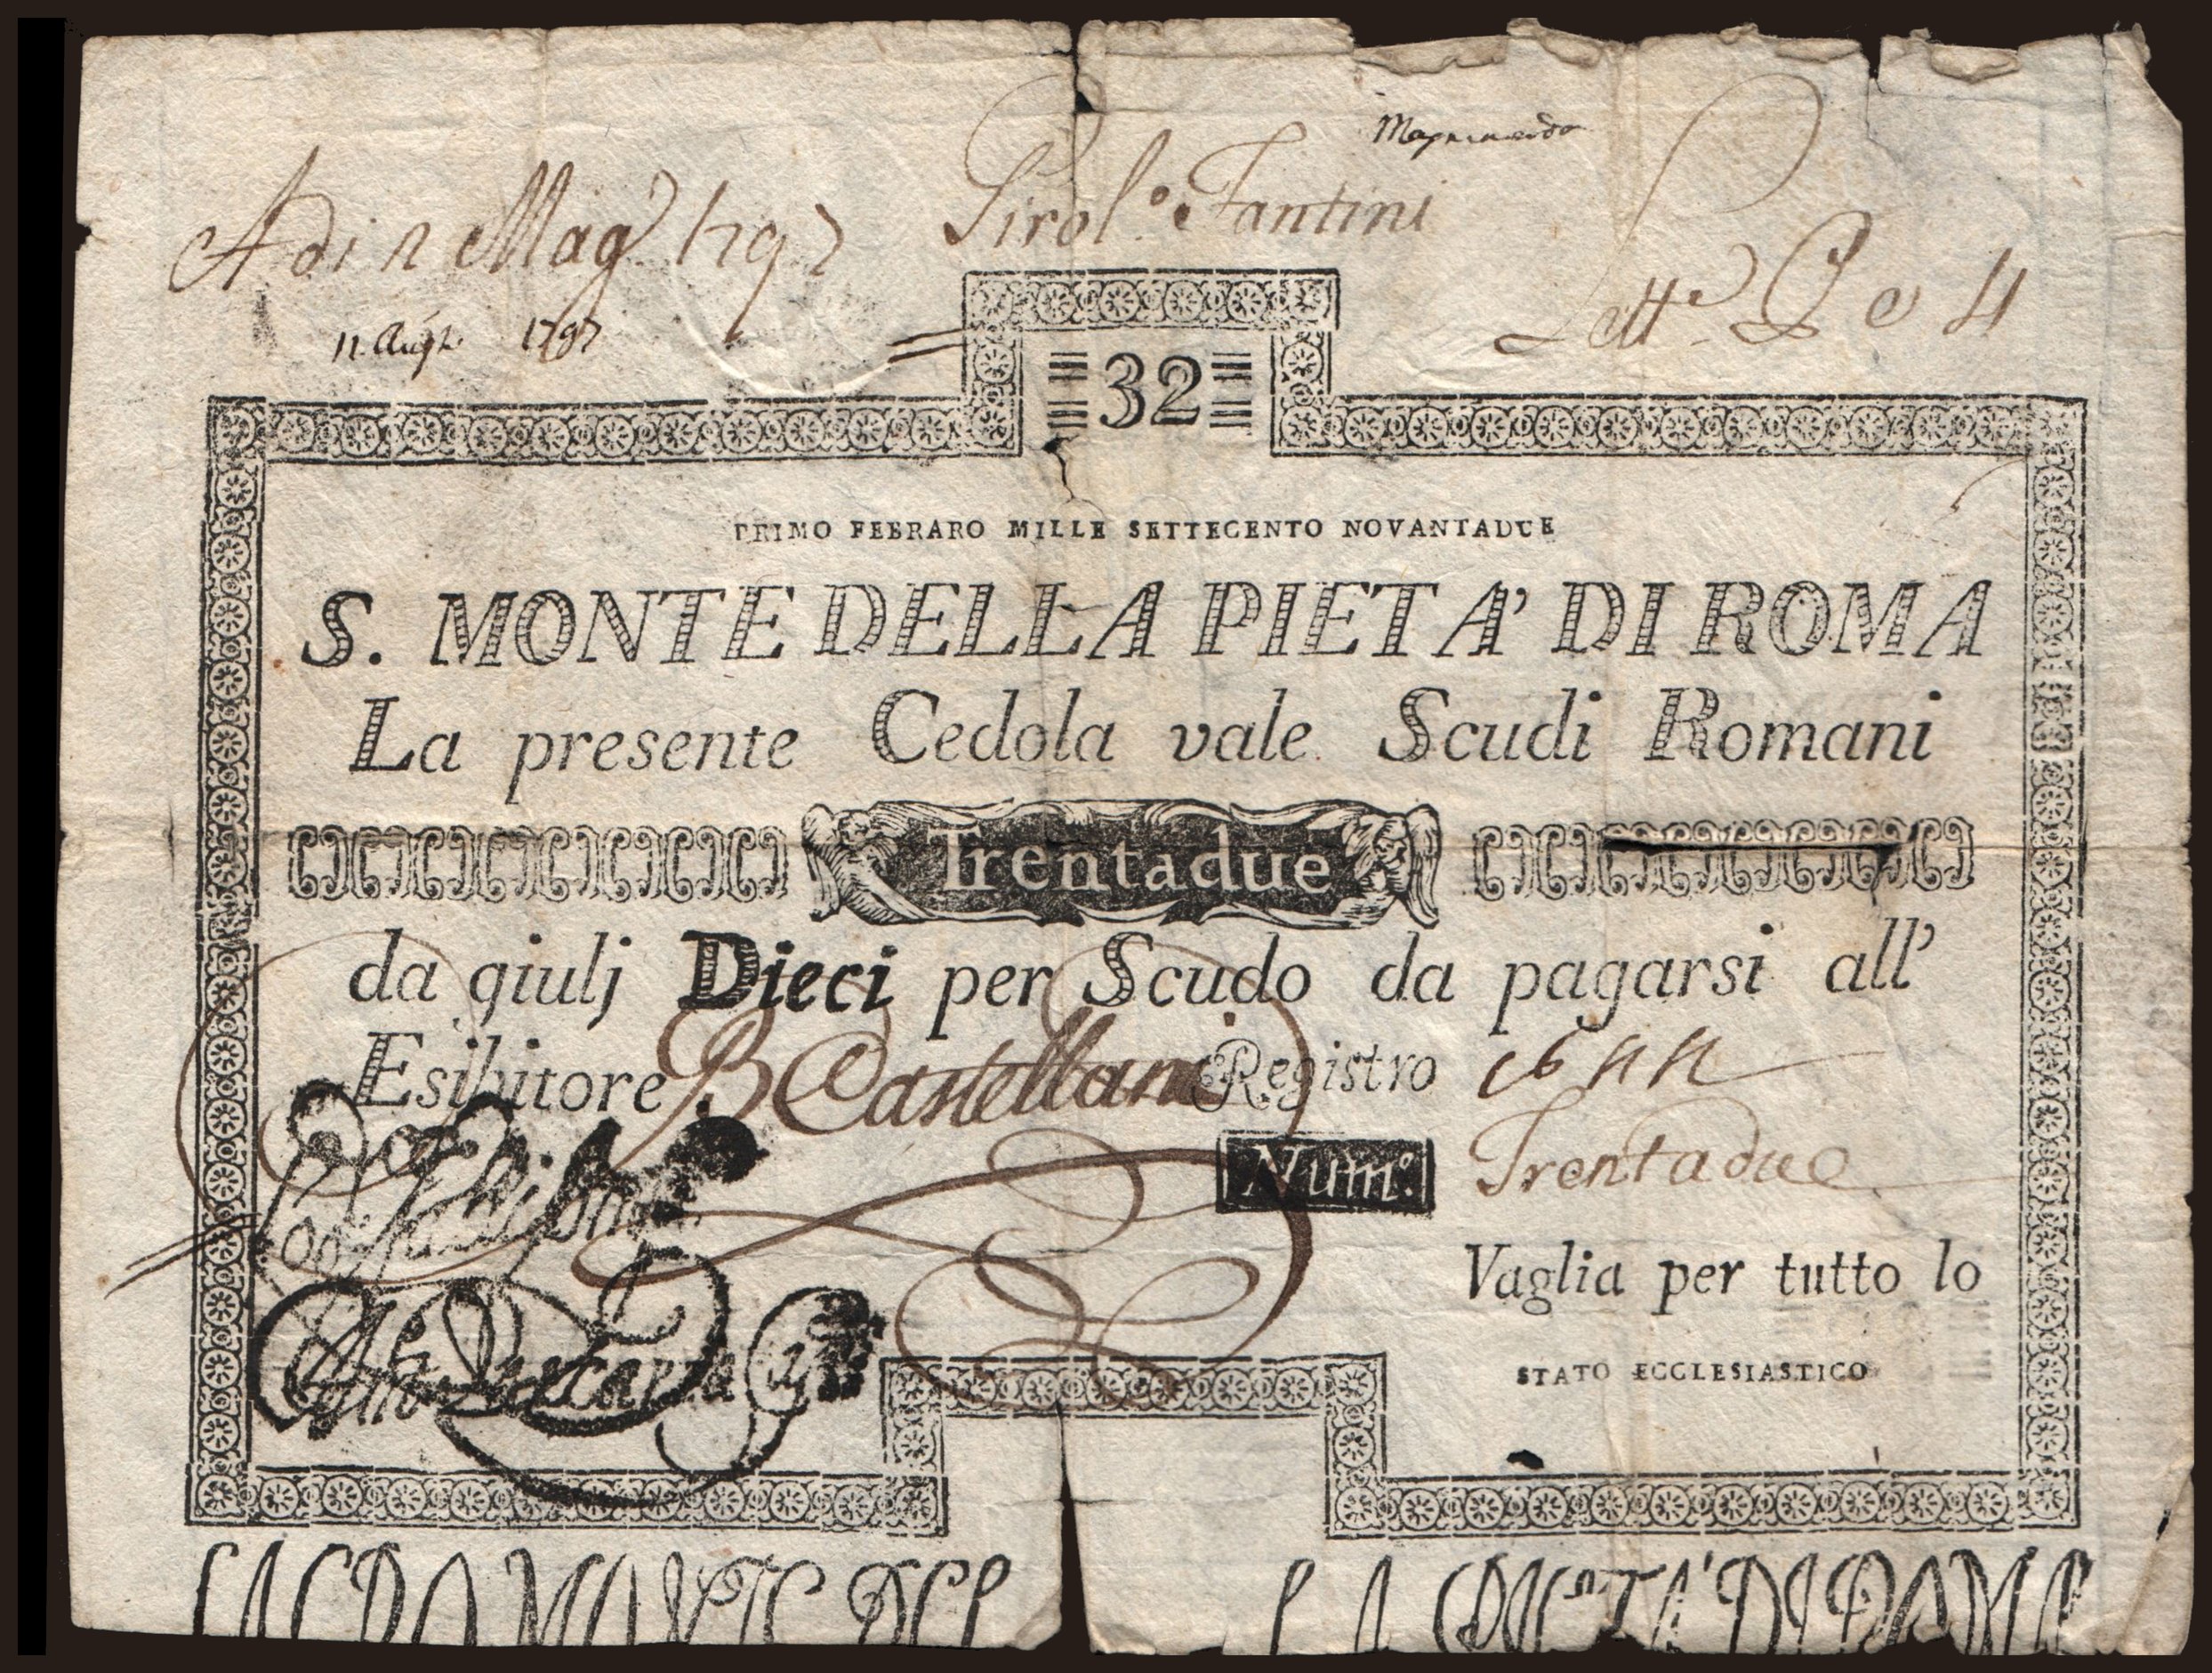 Adi 2 Mag. 1797 Girol.º Fantini
11. Augt. 1797 Lett.
32
PRIMO FEBRARO MILLE SETTECENTO NOVANTADUE
S. MONTE DELLA PIETA' DI ROMA
La presente Cedola vale Scudi Romani
Trentadue
da giulj Dieci per Scudo da pagarsi all'
Esibitore B Castellani Registro
Num.º Trentadue
Vaglia per tutto lo
STATO ECCLESIASTICO
SACRO MONTE DEL LA PIETA' DI ROMA